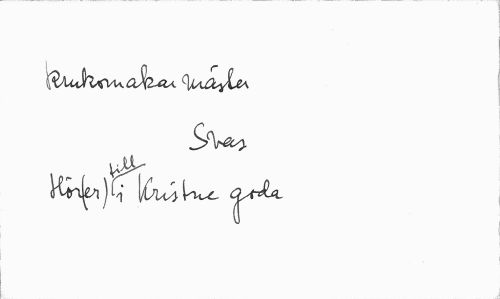 Krukomakar mäster
Svar
Hör(er) till i Kristne goda